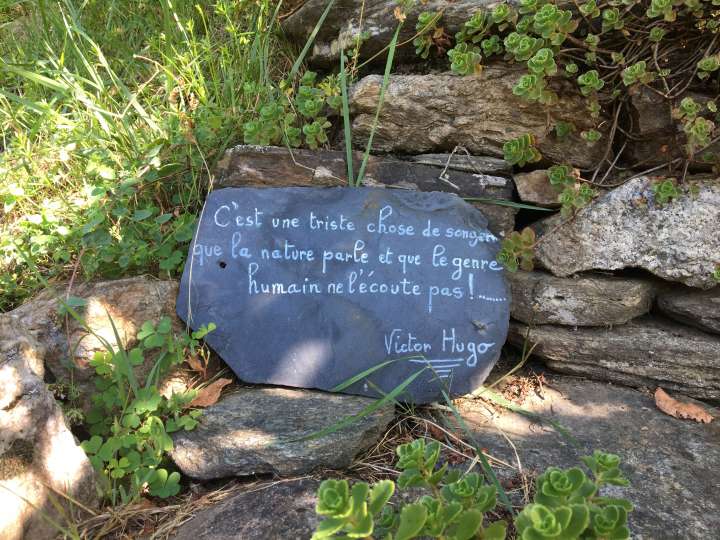 C'est une triste chose de songer
que la nature parle et que le genre
humain ne l'écoute pas !........
Victor Hugo